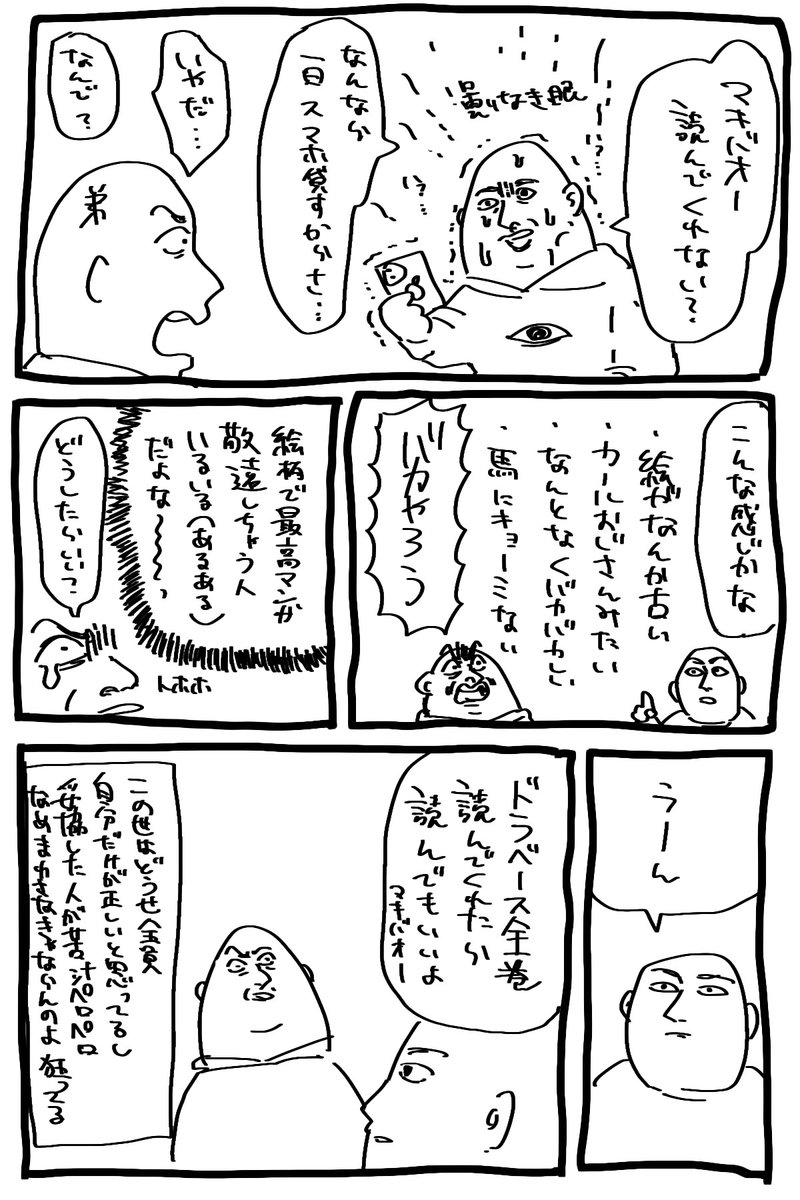 マキバオー
読んでくれない?
曇りなき眼
い?
い?
なんなら
一日スマホ貸すからさ…
いやだ…
なんで?
弟
こんな感じかな
・絵がなんか古い
・カールおじさんみたい
・なんとなくバカバカしい
・馬にキョーミない
バカやろう
絵柄で最高マンガ
敬遠しちゃう人
いるいる(あるある)
だよな〜〜〜っ
どうしたらいい?
トホホ
うーん
ドラベース全巻
読んでくれたら
読んでもいいよ
マキバオー
この世はどうせ全員
自分だけが正しいと思ってるし
妥協した人が苦汁ペロペロ
なめまわさなきゃならんのよ 狂ってる